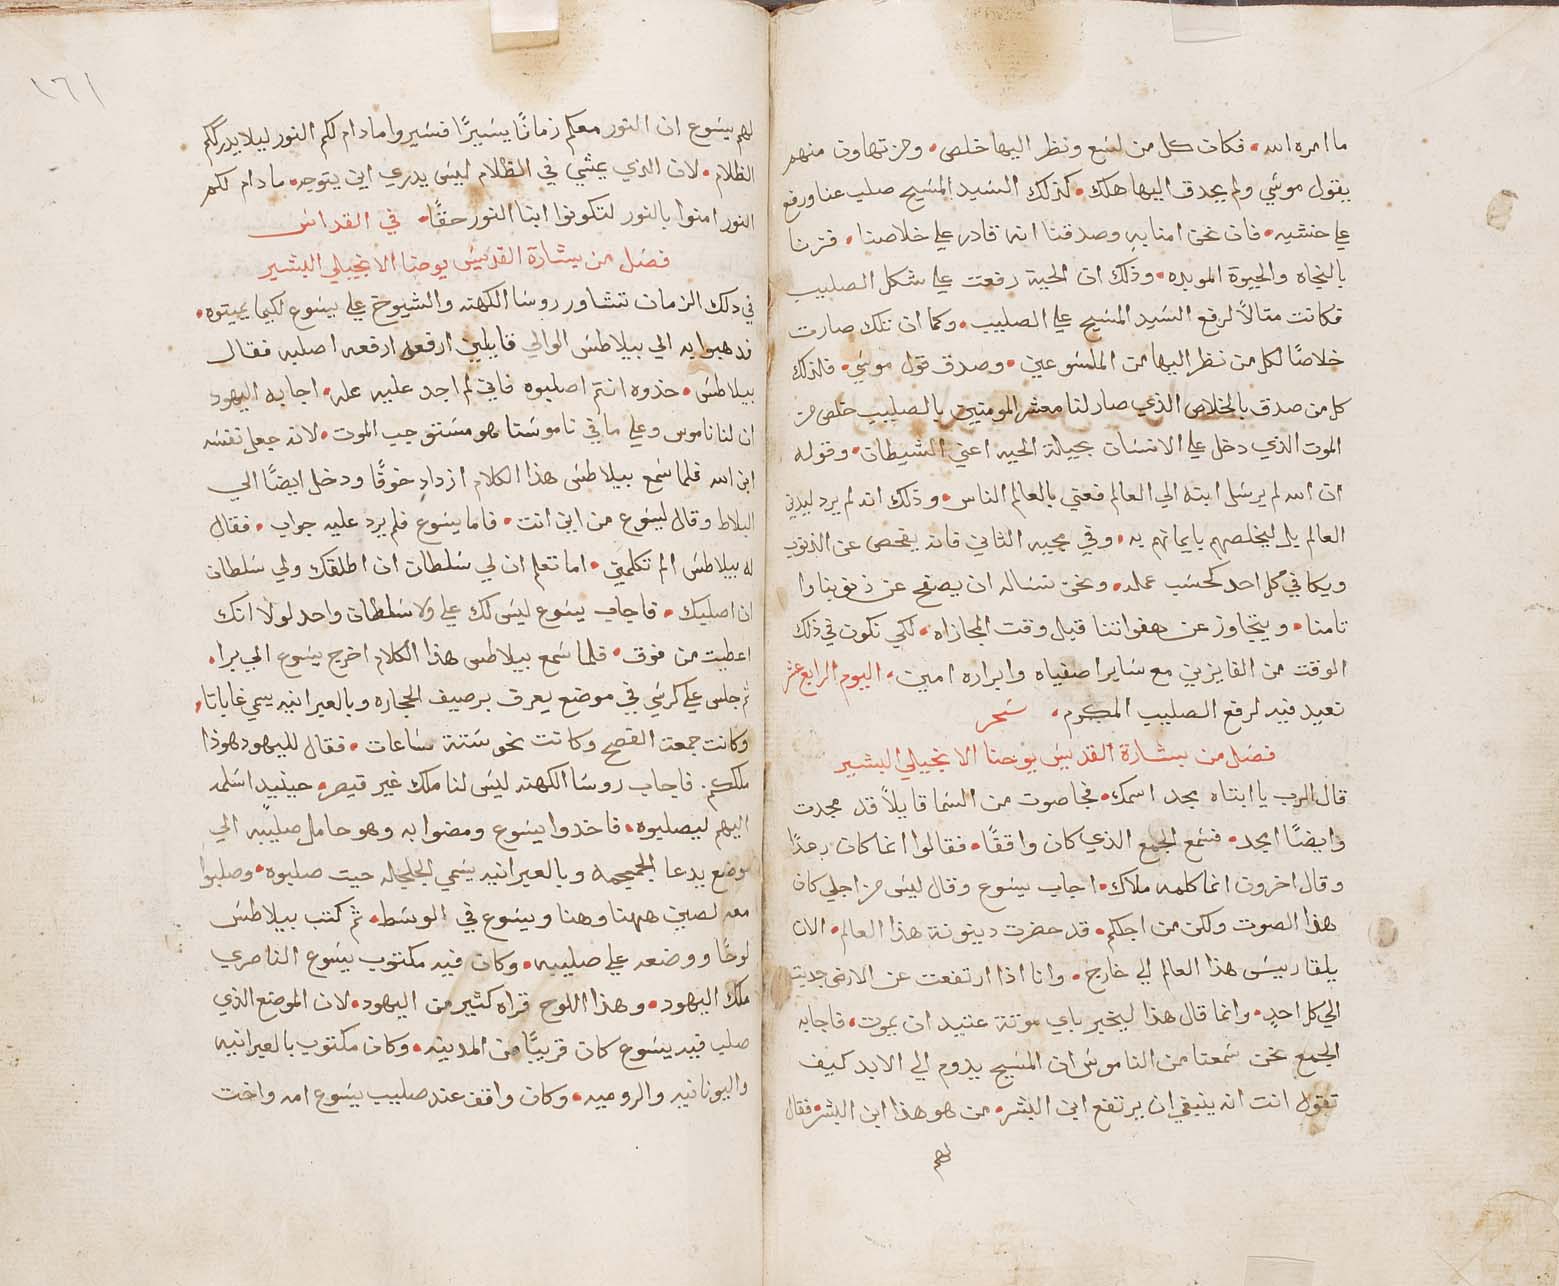 ما امره الله• فكان كل من لسع ونظر اليها خلص• ومن تهاون منهم
بقول موسي ولم يحدق اليها هلك• كذلك السيد المسيح صلب عنا ورفع
علي خشبه• فان نحن امنا به وصدقنا انه قادر علي خلاصنا• فزنا
بالنجاه والحيوة الموبده• وذلك ان الحية رفعت علي شكل الصليب
فكانت مثالاً لرفع السيد المسيح علي الصليب• وكما ان تلك صارت
خلاصًا لكل من نظر اليها من الملسوعين• وصدق قول موسي• فلذلك
كل من صدق بالخلاص الذي صار لنا معشر المومنين بالصليب خلص من
الموت الذي دخل علي الانسان بحيلة الحيه اعني الشيطان• وقوله
ان الله لم يرسل ابنه الي العالم فعني بالعالم الناس• وذلك انه لم يرد ليدين
العالم بل ليخلصهم بايمانهم به• وفي مجيه الثاني فانه يفحص عن الذنوب
ويكافي كل احد كحسب عمله• ونحن نساله ان يصفح عن ذنوبنا وا
ثامنا• ويتجاوز عن هفواتنا قبل وقت المجازاه• لكي نكون في ذلك
الوقت من الفايزين مع ساير اصفياه وابراره امين• اليوم الرابع عشر
نعيد فيه لرفع الصليب المكرم• سحر
فصل من بشارة القديس يوحنا الانجيلي البشير
قال الرب يا ابتاه مجد اسمك• فجا صوت من السما قايلاً قد مجدت
وايضًا امجد• فسمع الجمع الذي كان واقفًا• فقالوا انما كان رعدًا
وقال اخرون انما كلمه ملاك• اجاب يسوع وقال ليس من اجلي كان
هذا الصوت ولكن من اجلكم• قد حضرت دينونة هذا العالم• الان
يلقا رييس هذا العالم الي خارج• وانا اذا ارتفعت عن الارض جديت
الي كل احدٍ• وانما قال هذا ليخبر باي موتة عتيد ان يموت• فاجابه
الجمع نحن سمعنا من الناموس ان المسيح يدوم الي الابد كيف
تقول انت انه ينبغي ان يرتفع ابن البشر• من هو هذا ابن البشر• فقال
لهم
١٦١
لهم يسوع ان النور معكم زمانًا يسيرًا فسيروا مادام لكم النور ليلا يدرككم
الظلام• لان الذي يمشي في الظلام ليس يدري اين يتوجه• مادام لكم
النور امنوا بالنور لتكونوا ابنا النور حقًا• في القداس
فصل من بشارة القديس يوحنا الانجيلي البشير
في دلك الزمان تشاور روسا الكهنه والشيوخ علي يسوع لكيما يميتوه•
فدهبوا به الي بيلاطس الوالي قايلين ارفعه ارفعه اصلبه فقال
بيلاطس• خدوه انتم اصلبوه فاني لم اجد عليه عله• اجابه اليهود
ان لنا ناموس وعلي ما في ناموسنا هو مستوجب الموت• لانه جعل نفسه
ابن الله فلما سمع بيلاطس هذا الكلام ازداد خوفًا ودخل ايضًا الي
البلاط وقال ليسوع من اين انت• فاما يسوع فلم يرد عليه جواب• فقال
له بيلاطس الم تكلمني• اما تعلم ان لي سلطان ان اطلقك ولي سلطان
ان اصلبك• فاجاب يسوع ليس لك علي ولا سلطان واحد لولا انك
اعطيت من فوق• فلما سمع بيلاطس هذا الكلام اخرج يسوع الي برا•
ثم جلس علي كرسي في موضع يعرف برصيف الحجاره وبالعبرانيه يسمي غاباتا•
وكانت جمعة الفصح وكانت نحو ستة ساعات• فقال لليهود هوذا
ملككم• فاجاب روسا الكهنه ليس لنا ملك غير قيصر• حينيد اسلمه
اليهم ليصلبوه• فاخدوا يسوع ومضوا به وهو حامل صليبه الي
موضع يدعا الجمجمه وبالعبرانيه يسمي الجلجله حيت صلبوه• وصلبوا
معه لصين ههنا وهنا ويسوع في الوسط• ثم كتب بيلاطس
لوحًا ووضعه علي صليبه• وكان فيه مكتوب يسوع الناصري
ملك اليهود• وهذا اللوح قراه كثير من اليهود• لان الموضع الذي
صلب فيه يسوع كان قريبًا من المدينه• وكان مكتوب بالعبرانيه
واليونانيه والروميه• وكان واقف عند صليب يسوع امه واخت